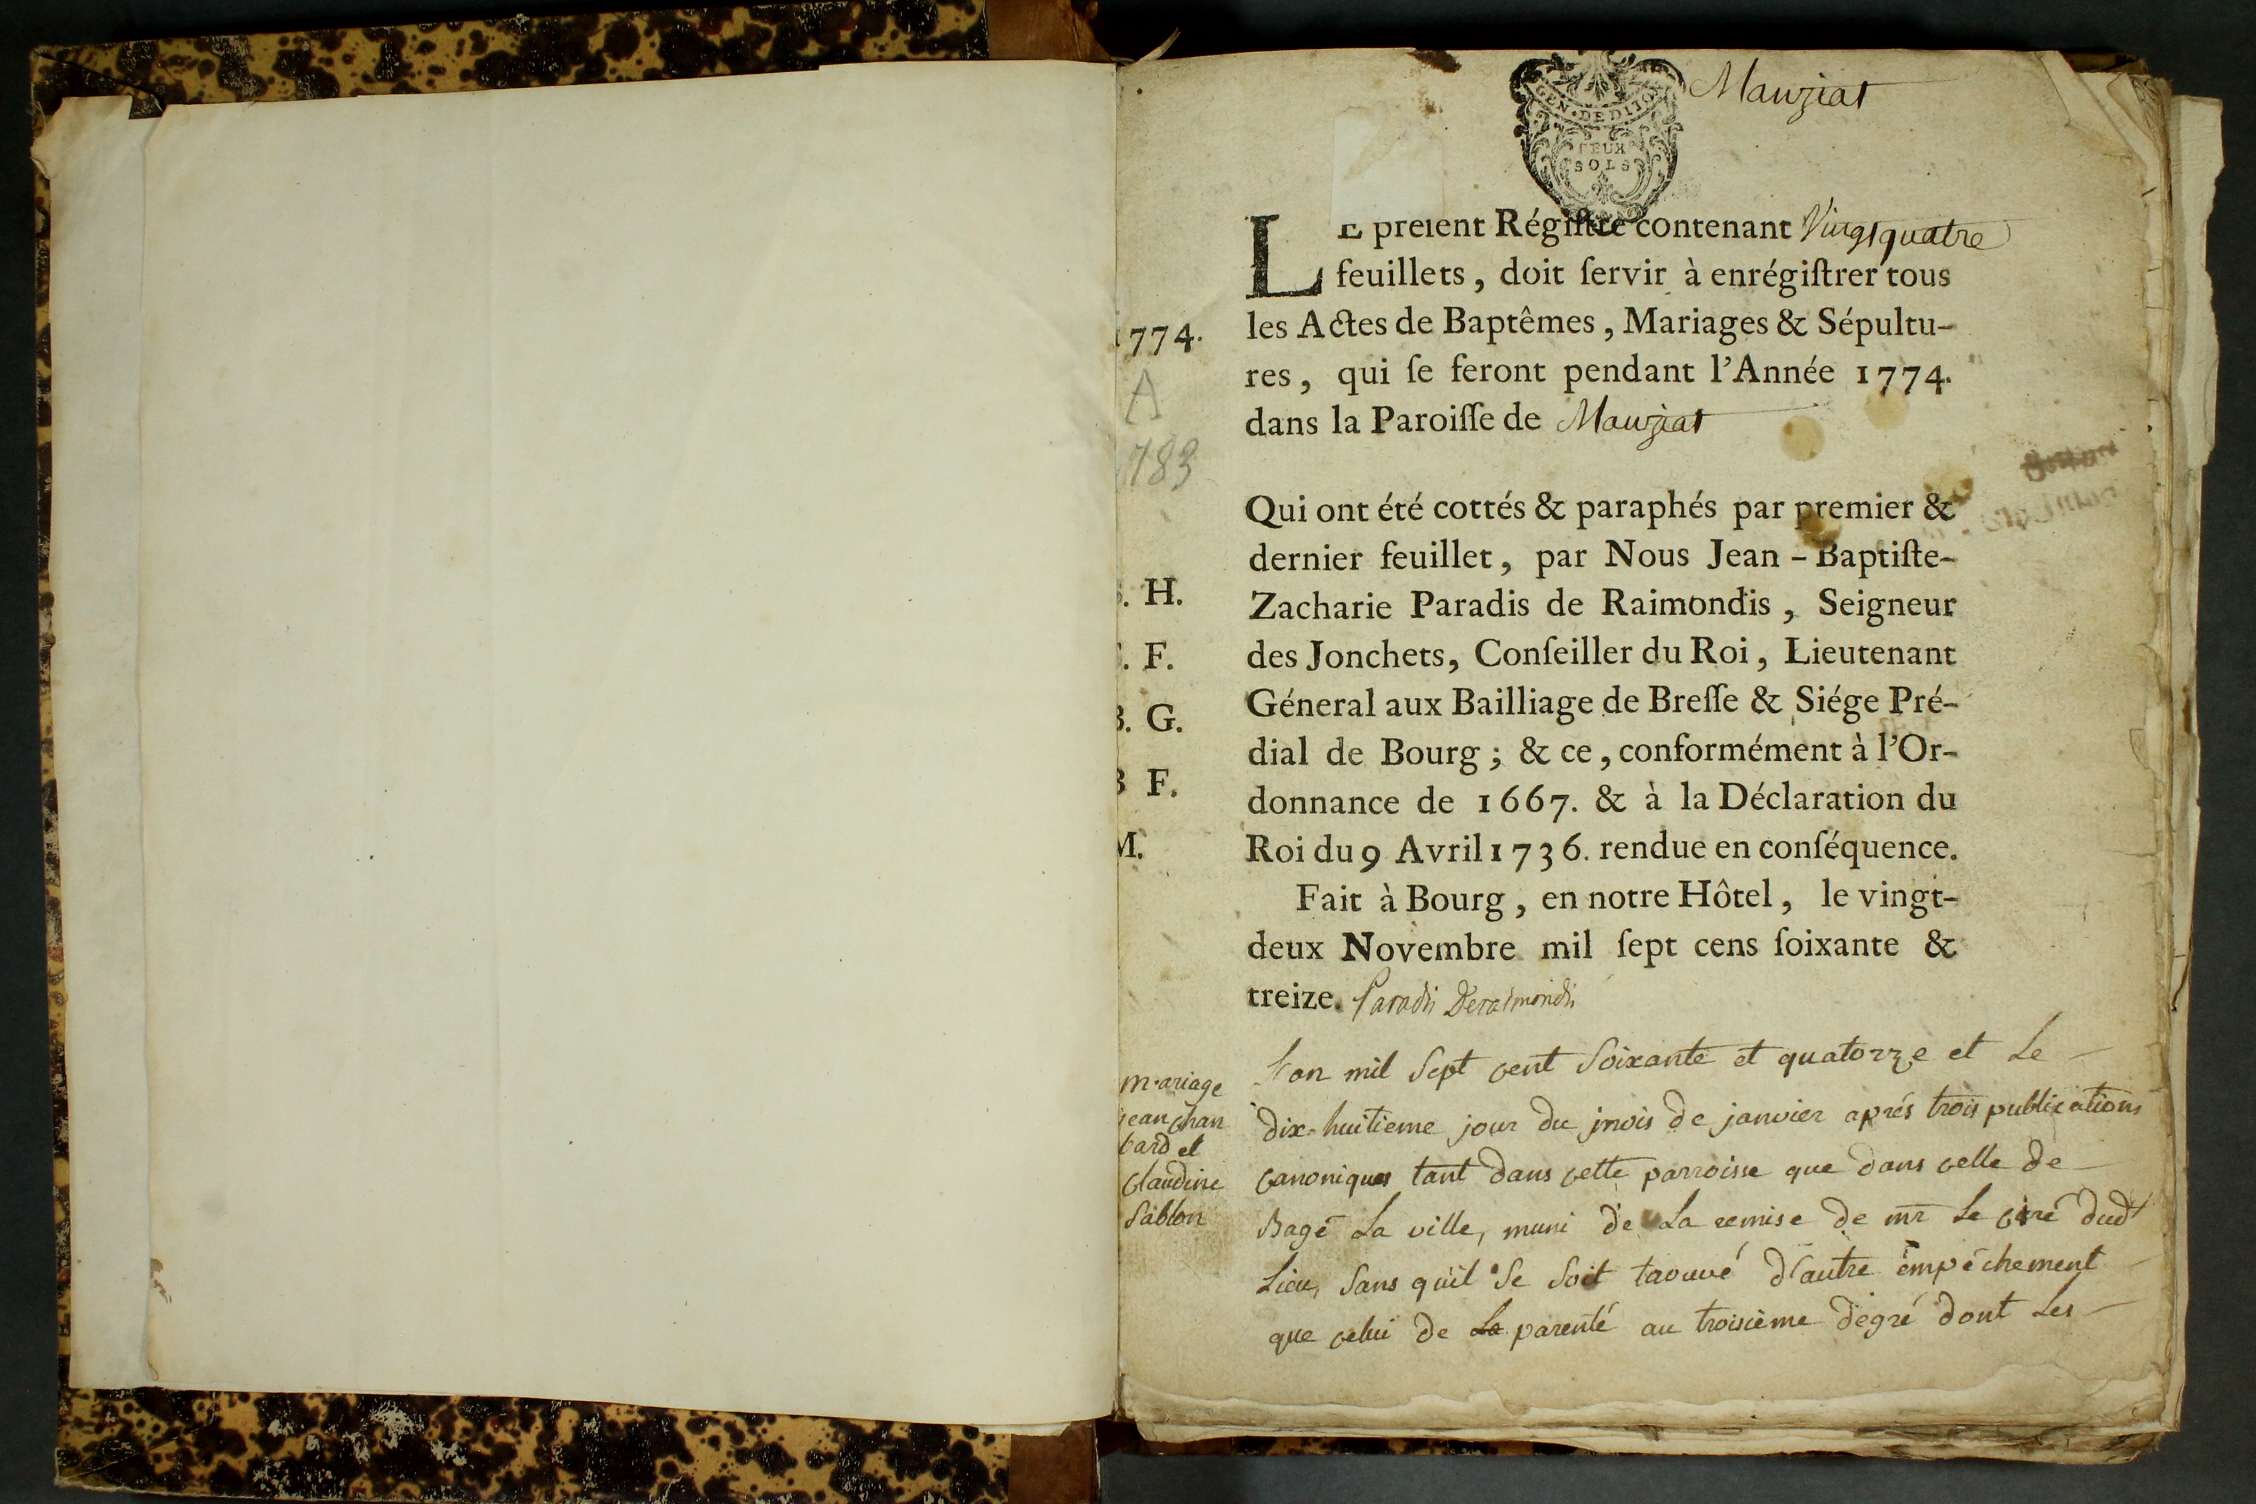 Mauziat
GEN · DE DIJO
DEUX
SOLS
LE preſent Régiſtre contenant Vingtquatre
feuillets, doit ſervir à enrégiſtrer tous
les Actes de Baptêmes, Mariages & Sépultu-
res, qui ſe feront pendant l'Année 1774.
dans la Paroiſſe de Mauziat
1774.
A
1783
Qui ont été cottés & paraphés par premier &
dernier feuillet, par Nous Jean-Baptiſte-
Zacharie Paradis de Raimondis, Seigneur
des Jonchets, Conſeiller du Roi, Lieutenant
Géneral aux Bailliage de Breſſe & Siége Pré-
dial de Bourg; & ce, conformément à l'Or-
donnance de 1667. & à la Déclaration du
Roi du 9 Avril 1736. rendue en conſéquence.
Fait à Bourg, en notre Hôtel, le vingt-
deux Novembre mil ſept cens ſoixante &
treize. Paradis Deraimondis
. H.
. F.
B. G.
B F.
M.
Mariage
jean Chan
bard et
Claudine
Sablon
L'an mil Sept cent Soixante et quatorze et Le
dix-huitieme jour du mois de janvier aprés trois publications
Canoniques tant dans cette parroisse que dans celle de
Bagé La ville, muni de La remise de mr Le curé dudt
Lieu, Sans qu'il Se Soit trouvé d'autre empéchement
que celui de La parenté au troisième dégré dont Les